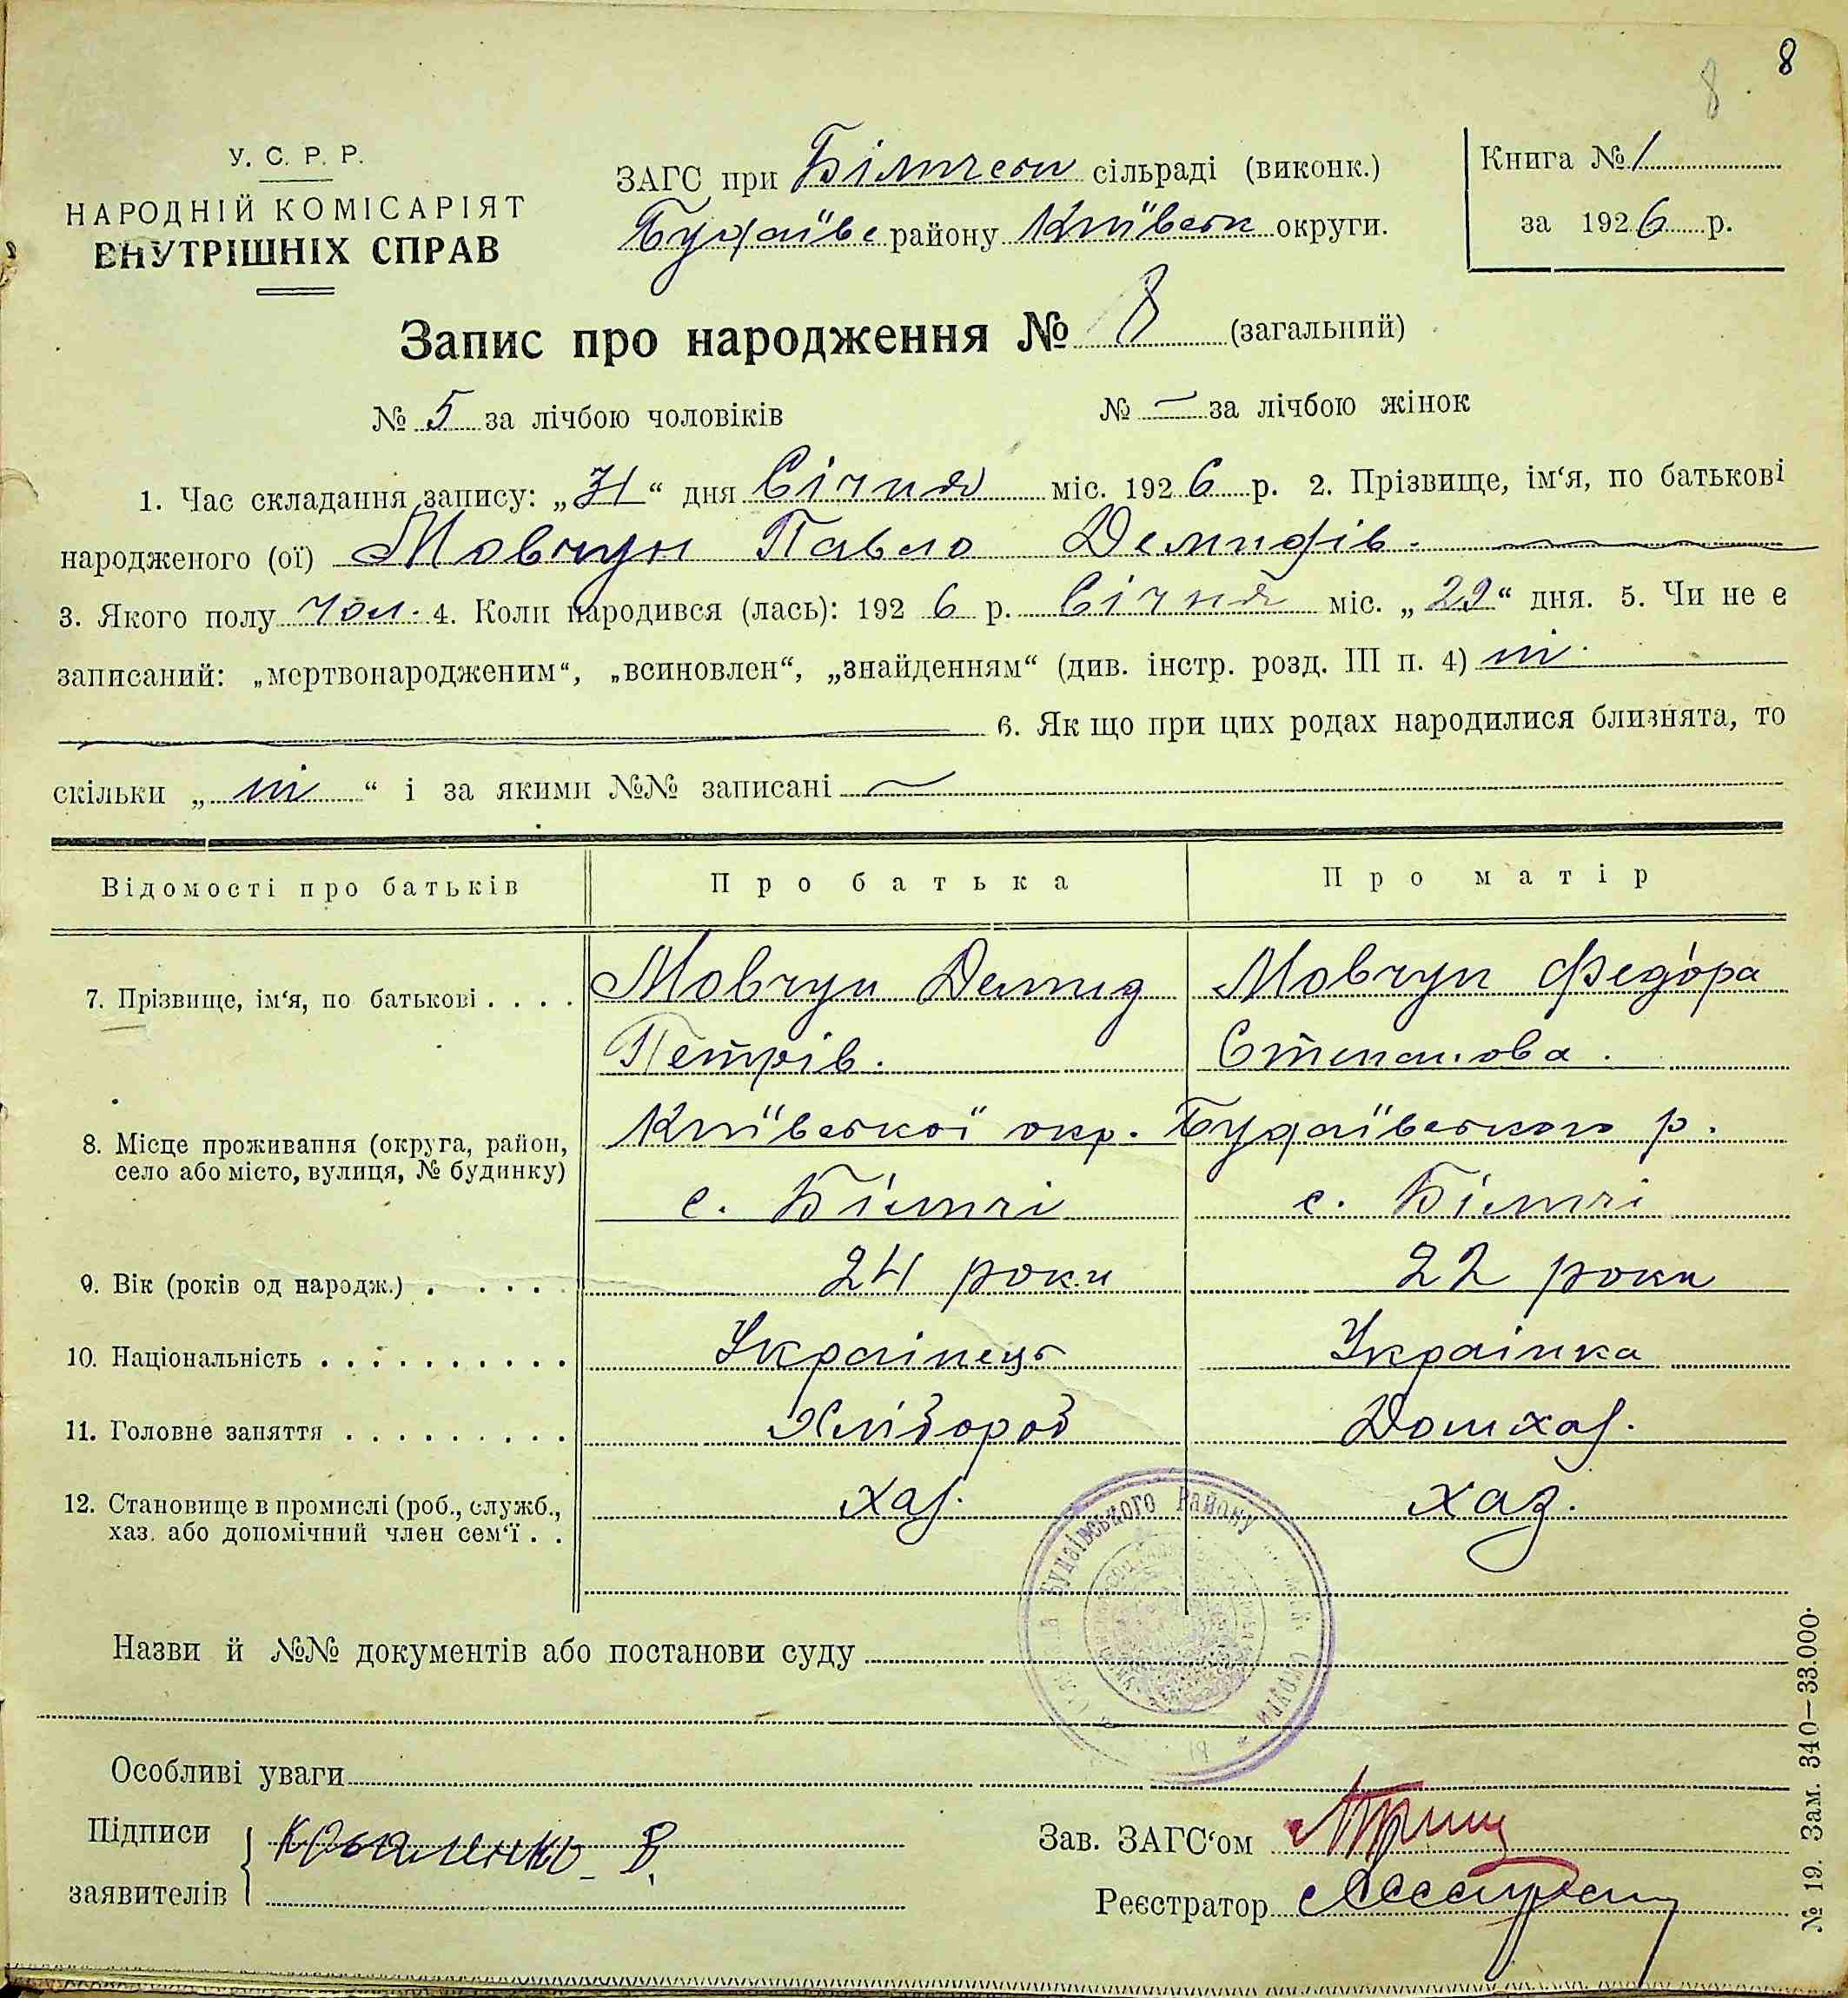 8
8
У. С. Р. Р.
НАРОДНІЙ КОМІСАРІЯТ
ВНУТРІШНІХ СПРАВ
ЗАГС при Білическ сільраді (виконк.)
Будаївс району Київськ округи.
Книга № 1
за 1926 р.
Запис про народження № 8 (загальний)
№ 5 за лічбою чоловіків № — за лічбою жінок
1. Час складання запису: „31“ дня Січня міс. 1926 р. 2. Прізвище, ім‘я, по батькові
народженого (ої) Мовчун Павло Демидів.
3. Якого полу чол. 4. Коли народився (лась): 1926 р. Січня міс. „29“ дня. 5. Чи не є
записаний: „мертвонародженим“, „всиновлен“, „знайденням“ (див. інстр. розд. III п. 4) ні.
6. Як що при цих родах народилися близнята, то
скільки „ні“ і за якими №№ записані —
Відомості про батьків Про батька Про матір
7. Прізвище, ім‘я, по батькові . . . . Мовчун Демид Мовчун Федора
Петрів. Степанова.
8. Місце проживання (округа, район, Київської окр. Будаївського р.
село або місто, вулиця, № будинку) с. Біличі с. Біличі
9. Вік (років од народж.) . . . . . 24 роки 22 роки
10. Національність . . . . . . . . . . Українець Українка
11. Головне заняття . . . . . . . . . Хлібороб Домхаз.
12. Становище в промислі (роб., служб., хаз. хаз.
хаз. або допомічний член сем‘ї . .
Будаївського Району
Округи
Назви й №№ документів або постанови суду
Особливі уваги
Підписи
заявителів
Зав. ЗАГС‘ом
Реєстратор
№ 19. Зам. 340—33.000.